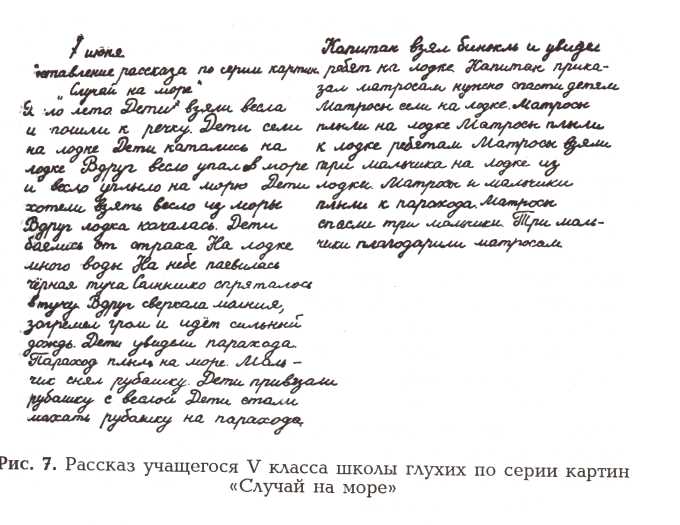 7 июня
"оставление рассказа по серии картин.
"Случай на море"
Я ло лета Дети взяли весла
и пошли к речку. Дети сели
на лодке Дети катались на
лодке Вдруг весло упал в море
и весло уплыло на морю Дети
хотели взять весло из моры
Вдруг лодка качалась. Дети
баелись от страха На лодке
много воды На небе паевилась
чёрная туча Салнышко спряталось
в тучу. Вдруг сверкала малния,
загремел гром и идёт сильный
дождь. Дети увидели парахода.
Параход плыл на море. Маль-
чик снял рубашку. Дети привязали
рубашку с веслой Дети стали
махать рубашку на парахода.
Капитан взял бинокль и увидел
ребят на лодке. Капитан прика-
зал матросам нужно спасти детям
Матросы сели на лодке. Матросы
плыли на лодке Матросы плыли
к лодке ребятам Матросы взяли
тери мальчика на лодке из
лодки. Матросы и мальчики
плыли к парахода. Матросы
спасли три мальчики. Три маль-
чики плагодарили матросам
Рис. 7. Рассказ учащегося V класса школы глухих по серии картин
«Случай на море»